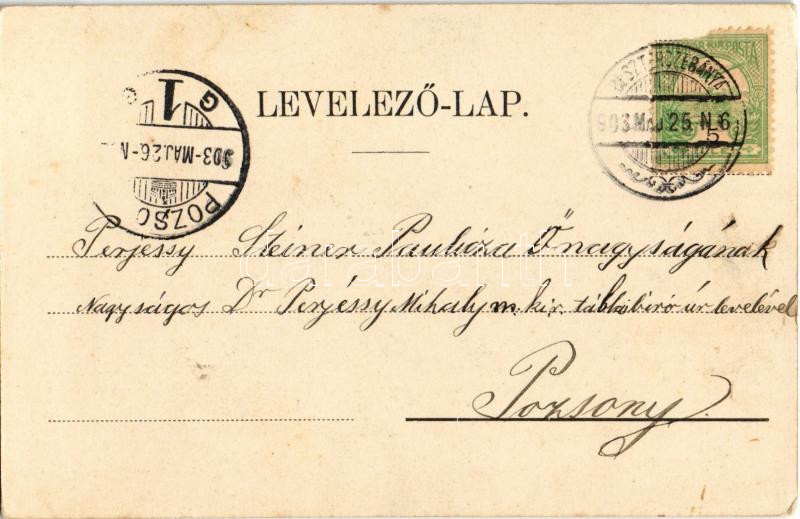 LEVELEZŐ-LAP.
G 1 G
903-MAJ.26-N
POZSO
BESZTERCZEBÁNYA
903 MAJ.25.N.6
5
POSTA
Perjessy Steiner Paulina Őnagyságának
Nagyságos Dr Perjéssy Mihály m. kir. táblabiró úr levelével
Pozsony.
darabanth